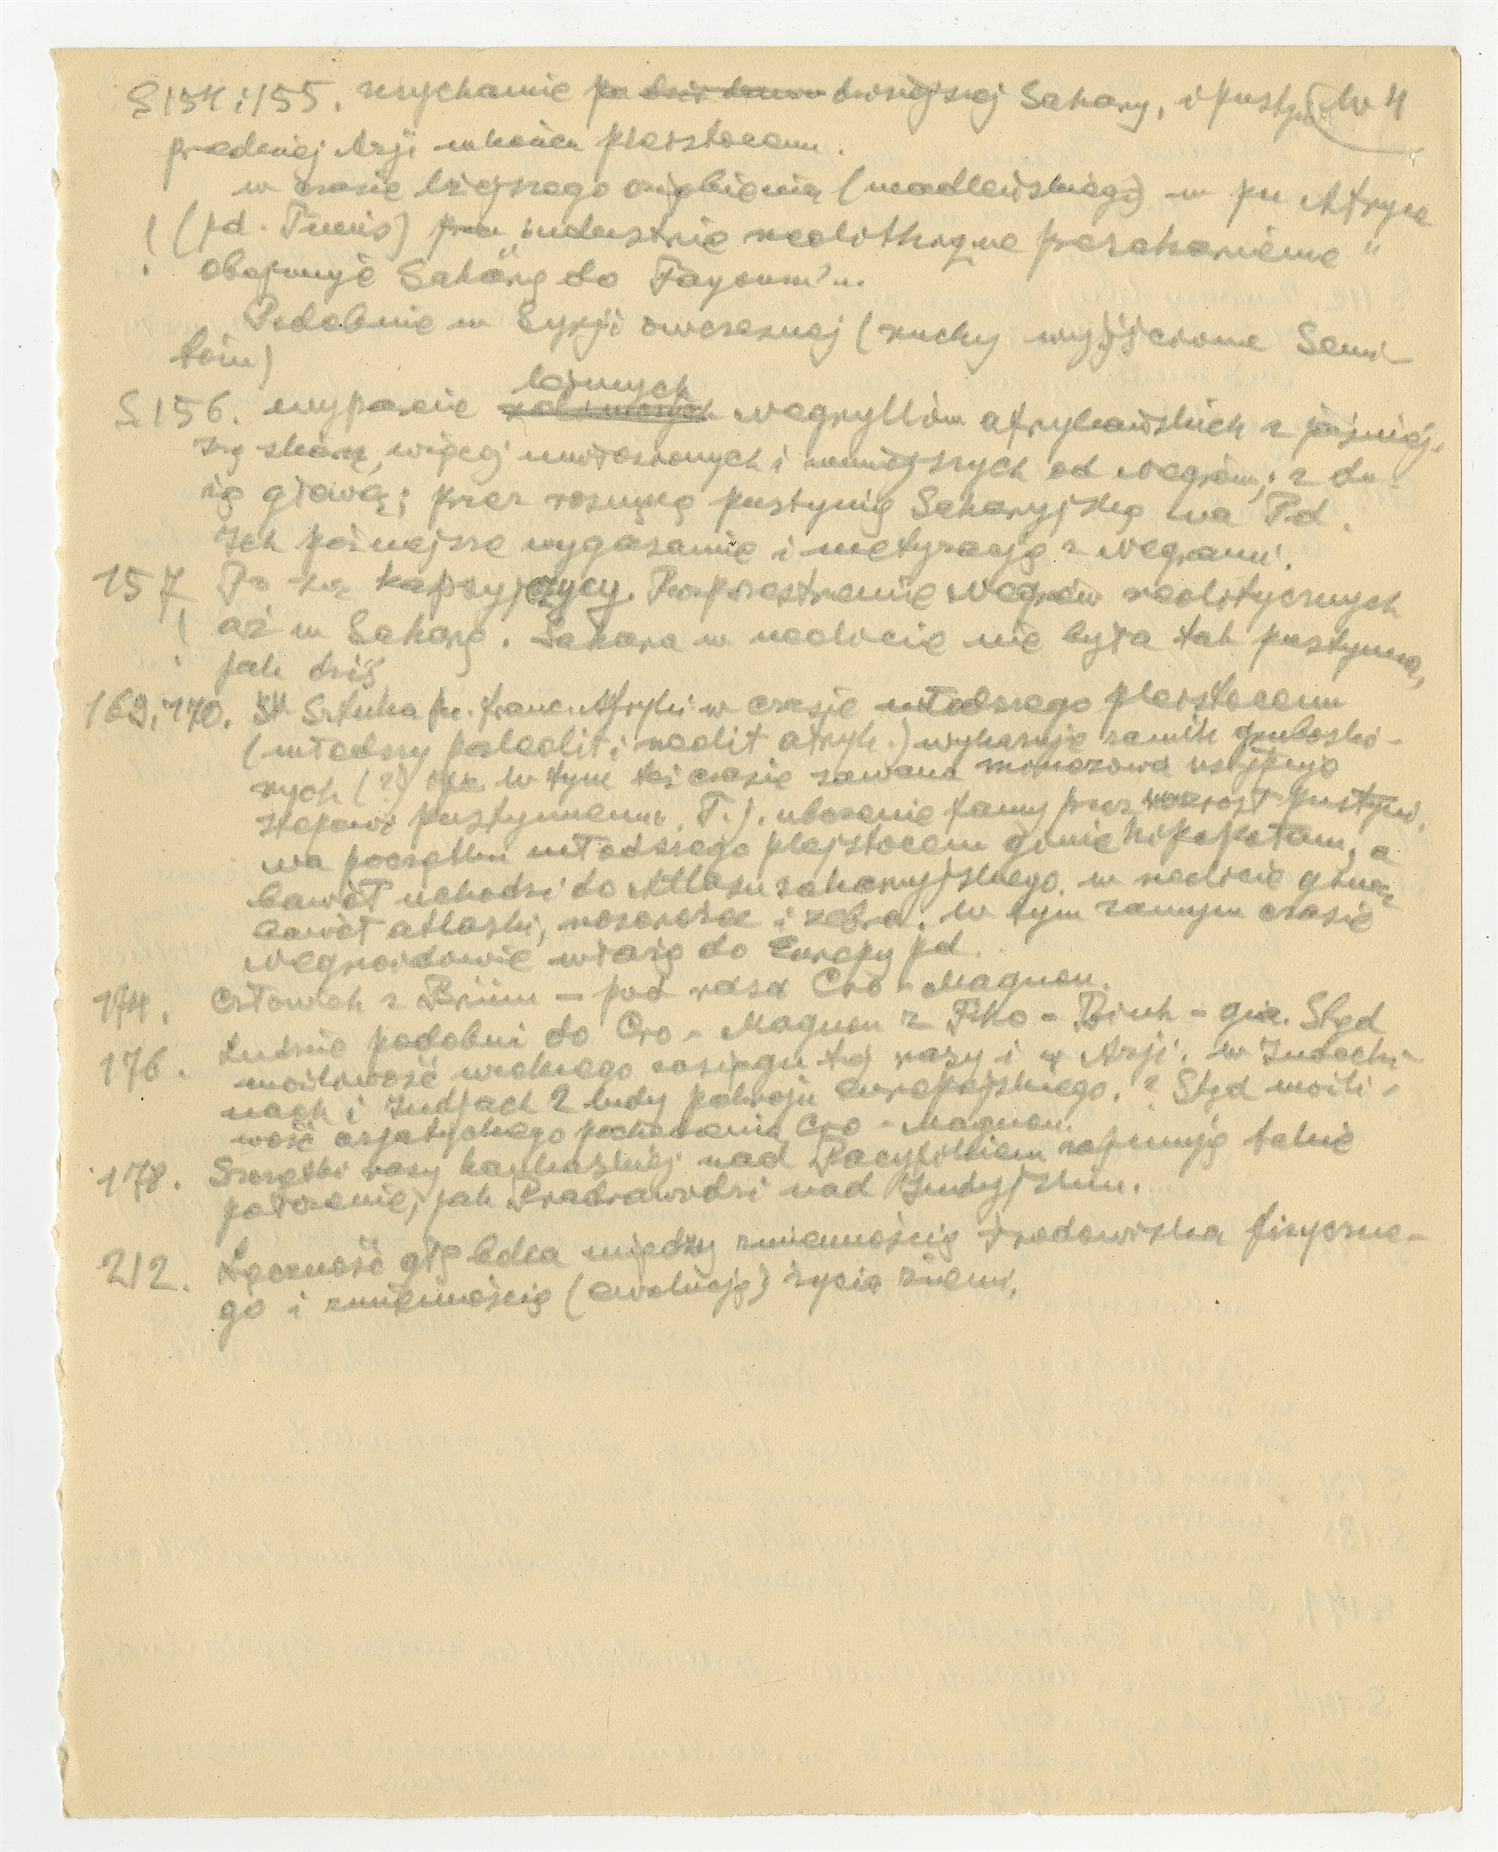 S 154 i 155. wysychanie po dziś dawn dzisiejszej Sahary, i pustyń W 4
przedniej Azji w końcu pleistocenu.
w czasie lżejszego oziębienia (madleńskiego) w pn Afryce
! (pd. Tunis) prze „industrie neolithique persaharienne"
obejmuje Saharę do Fayoum'u.
Podobnie w Syrji ówczesnej (ruchy wyjściowe Semi-
tów)
leśnych
S. 156. wyparcie Negryllów afrykańskich z jaśniej-
szą skórą, więcej uwłosionych i mniejszych od Negrów; z du-
żą głową; przez rosnącą pustynię Saharyjską na Pd.
Ich późniejsze wygasanie i metyzacja z Negrami.
157 To są kapsyjczycy. Rozprzestrzenienie Negrów neolitycznych
! aż w Saharę. Sahara w neolicie nie była tak pustynna,
jak dziś
169, 170. Sztuka pn. franc. Afryki w czasie młodszego pleistocenu
(młodszy paleolit i neolit afryk.) wykazuje zanik gruboskó-
rnych (?) W tym też czasie sawana mimozowa ustępuje
stepowi pustynnemu. T.j. ubożenie fauny przez wzrost pustyni.
na początku młodszego plejstocenu ginie hipopotam, a
bawół uchodzi do Atlasu saharyjskiego. w neolicie giną:
bawół atlaski, nosorożce i zebra. W tym samym czasie
Negroidowie włażą do Europy pd.
174. Człowiek z Brünn — pod rasa Cro-Magnon.
176. Ludzie podobni do Cro-Magnon z Fho-Binh-gia. Stąd
możliwość wielkiego zasięgu tej rasy i w Azji. w Indochi-
nach i Indjach 2 ludy pokroju europejskiego. ? Stąd możli-
wość azjatyckiego pochodzenia Cro-Magnon.
178. Szczątki rasy kaukaskiej nad Pacyfikiem zajmują takie
położenie, jak Pradrawidzi nad Indyjskim.
212. Łączność głęboka między zmiennością środowiska fizyczne-
go i zmiennością (ewolucją) życia ziemi.